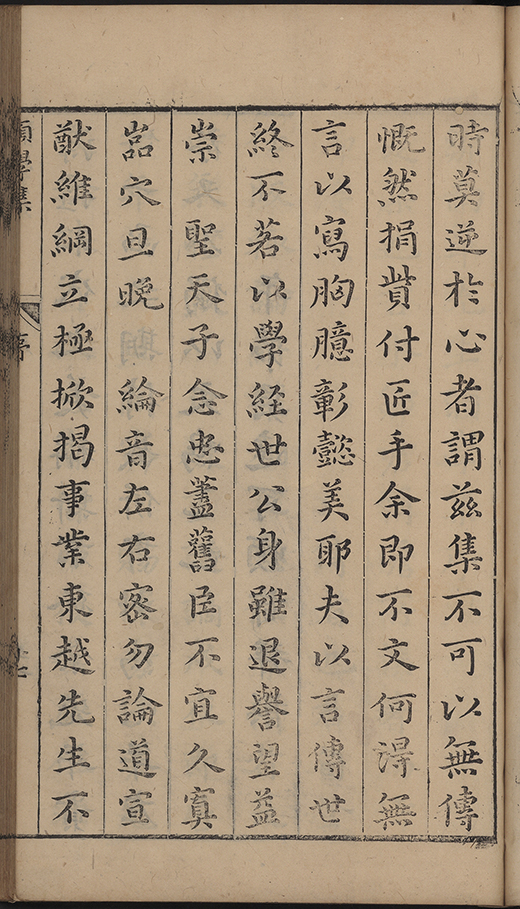 時莫逆於心者謂兹集不可以無傳
慨然捐貲付匠手余即不文何淂無
言以寫胸臆彰懿美耶夫以言傳世
終不若以學経世公身雖退譽望益
崇聖天子念忠藎舊臣不宜久寘
嵓穴旦晚綸音左右宻勿論道宣
猷維綱立極掀揭事業東越先生不
學集
序